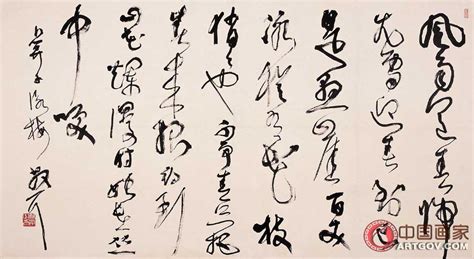 風雨送春歸
飛雪迎春到已
是懸崖百丈
冰猶有花枝
俏俏也不爭春只把
春來報待到
山花爛漫時她在叢
中笑
卜算子詠梅
中国画家
ARTGOV.COM